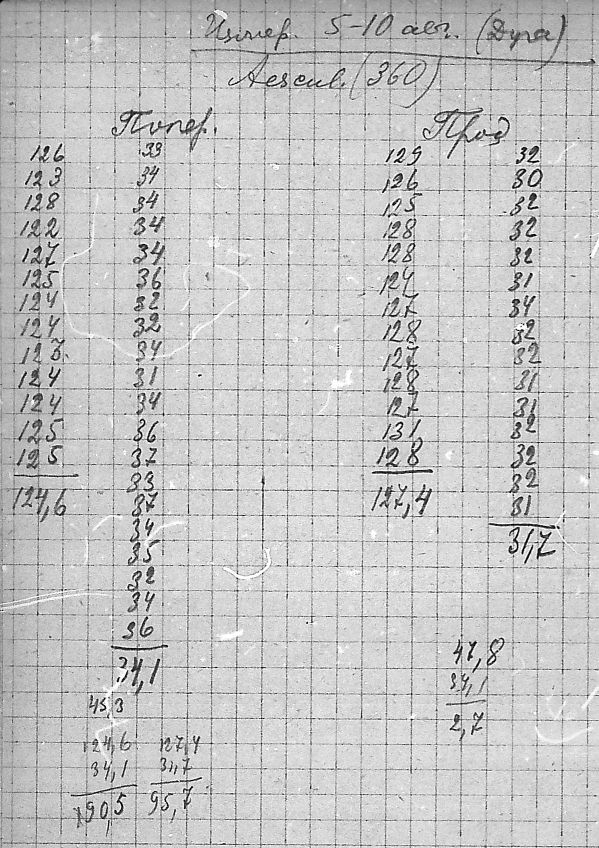 Измер. 5-10 авг. (Дуга)
Aescul. (360)
Попер. Прод
126 33 129 32
123 34 126 30
128 34 125 32
122 34 128 32
127 34 128 32
125 36 124 31
124 32 127 34
124 32 128 32
123 34 127 32
124 31 128 31
124 34 127 31
125 36 131 32
125 37 128 32
33 32
124,6 37 127,4 31
34
35 31,7
32
34
36
34,1 47,8
45,3 34,1
2,7
124,6 127,4
34,1 31,7
90,5 95,7